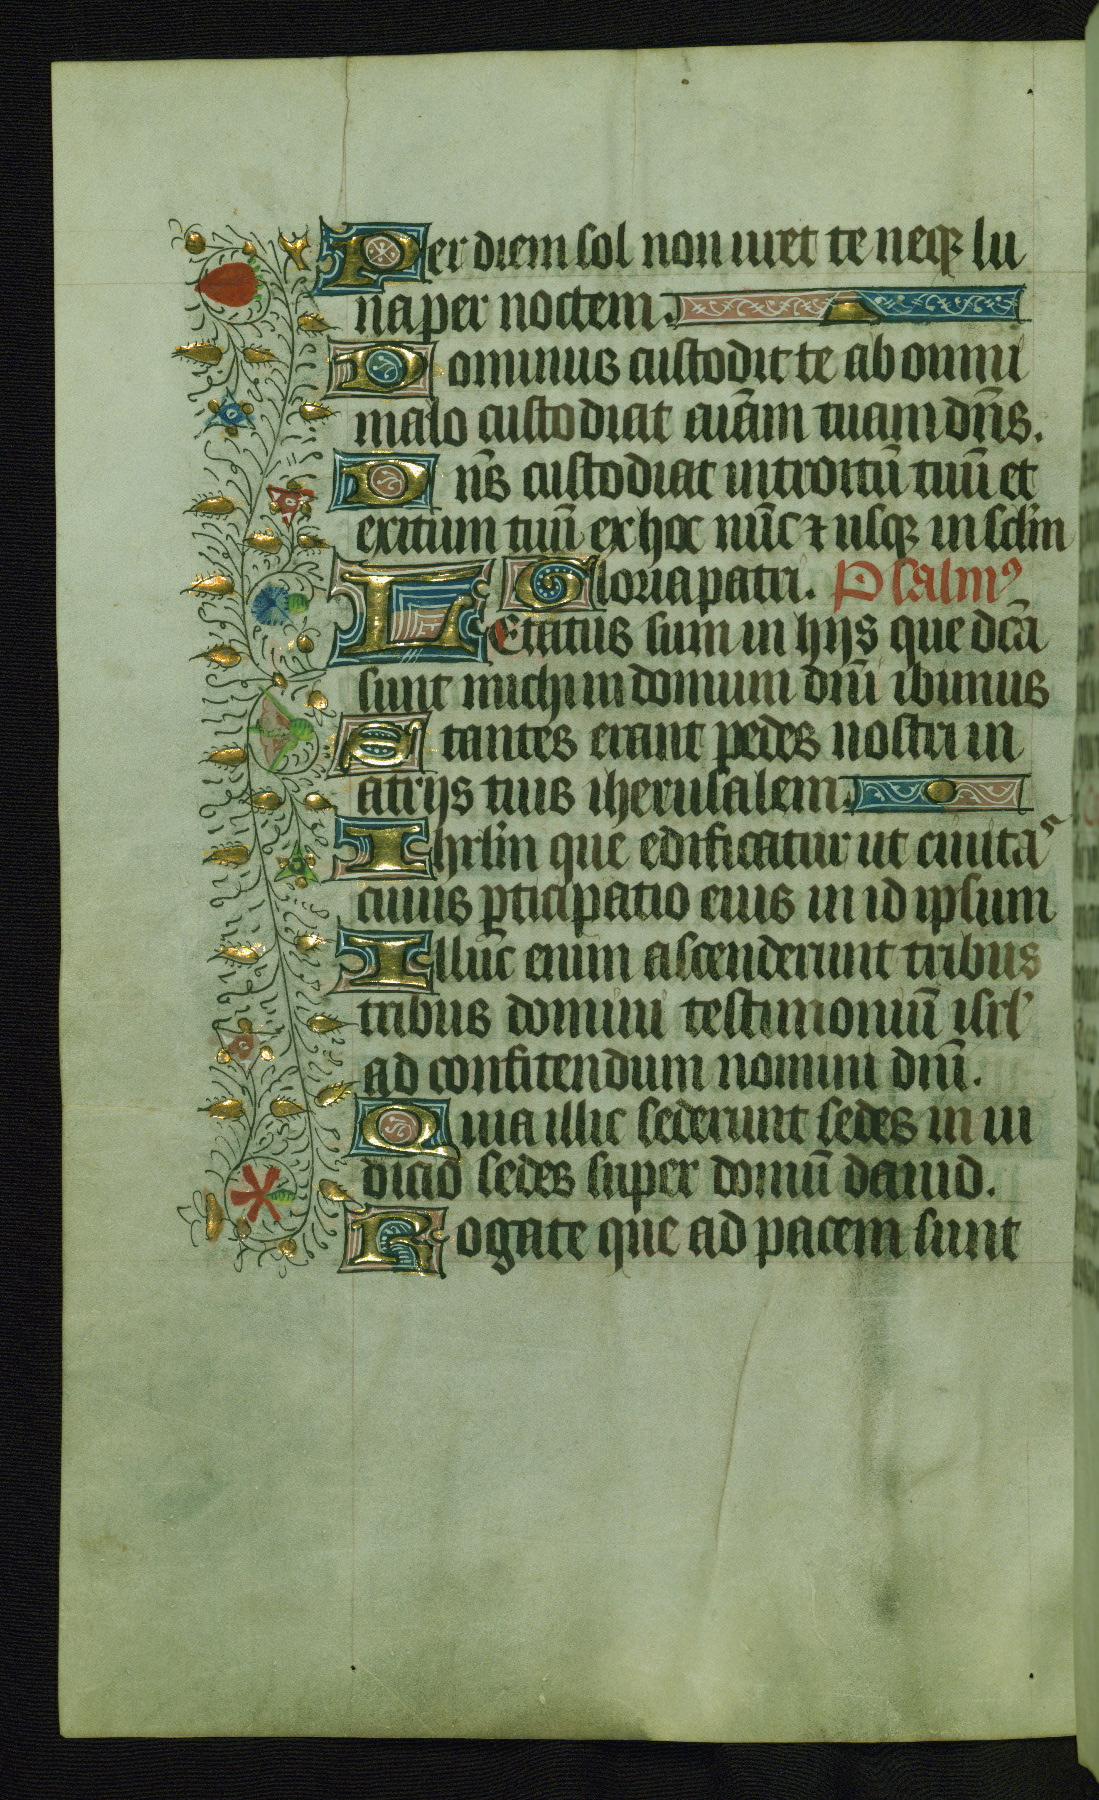 Per diem sol non uret te neqꝫ lu
na per noctem.
Dominus custodit te ab omni
malo custodiat aīam tuam dn̄s.
Dn̄s custodiat introitū tuū et
exitum tuū ex hoc nūc ⁊ usqꝫ in sclm̄
Gloria patri. Psalmꝰ
LEtatus sum in hijs que dcā
sunt michi in domum dn̄i ibimus
Stantes erant pedes nostri in
atrijs tuis iherusalem.
Ihrlm̄ que edificatur ut ciuitas
cuius ꝑticipatio eius in id ipsum
Illuc enim ascenderunt tribus
tribus domini testimoniū isrl'
ad confitendum nomini dn̄i.
Quia illic sederunt sedes in iu
dicio sedes super domū dauid.
Rogate que ad pacem sunt